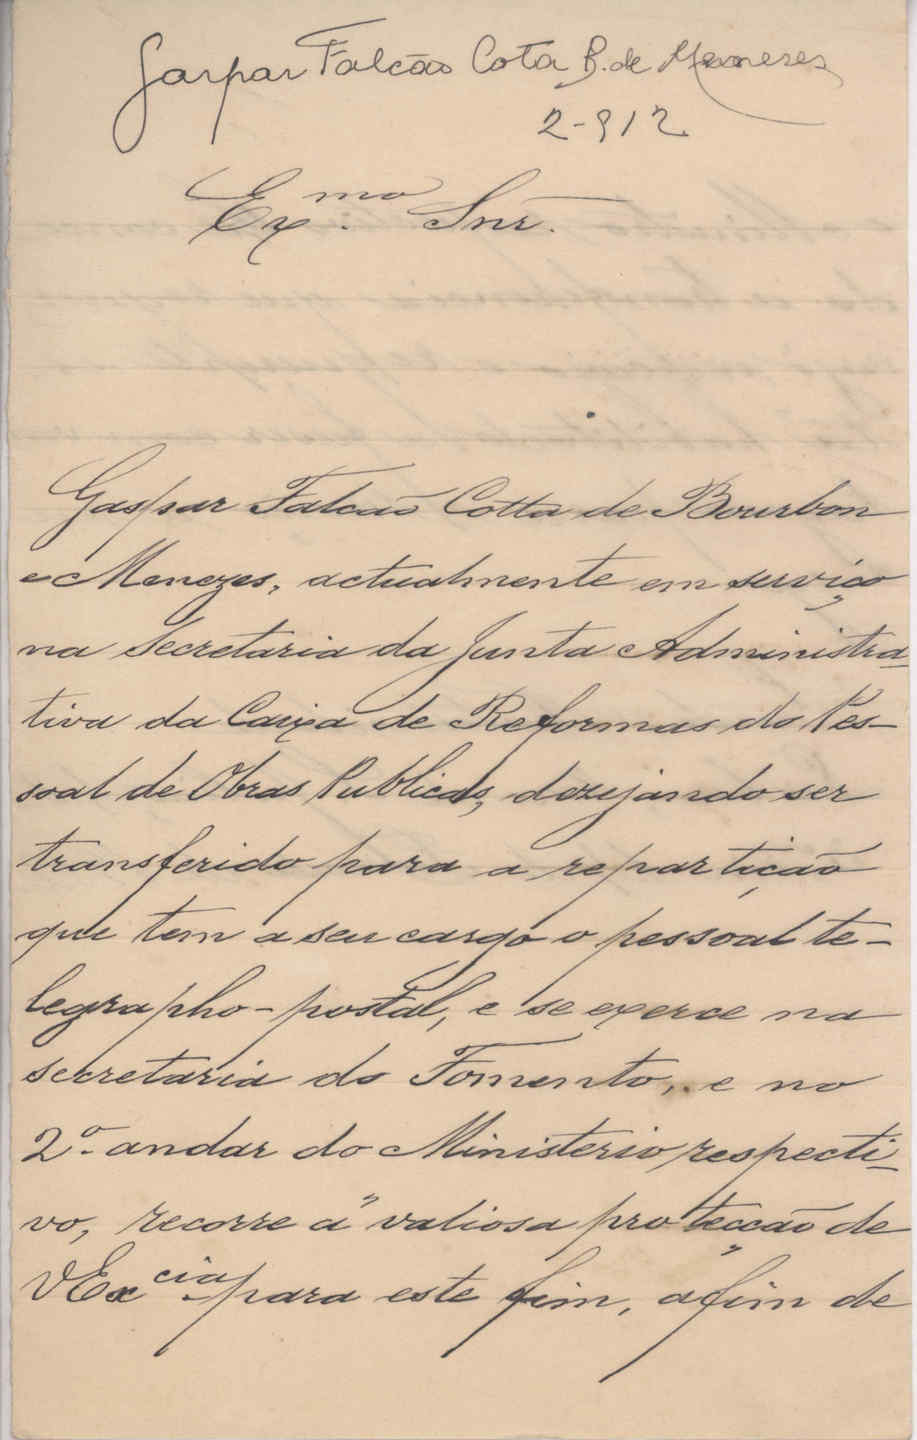 Gaspar Falcão Cota B. de Menezes
2-912
Exmo. Snr.
Gaspar Falcão Cotta de Bourbon
e Menezes, actualmente em serviço
na secretaria da Junta Administra-
tiva da Caixa de Reformas do Pes-
soal de Obras Publicas, dezejando ser
transferido para a repartição
que tem a seu cargo o pessoal te-
legrapho-postal, e se exerce na
secretaria do Fomento, e no
2º. andar do Ministerio respecti-
vo, recorre á valiosa protecção de
VExcia. para este fim, afim de